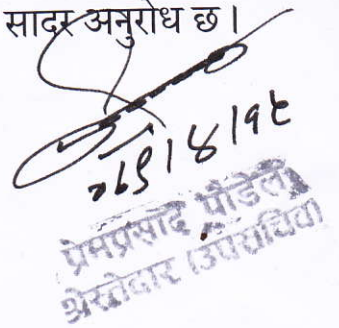 सादर अनुरोध छ।
प्रेमप्रसाद पौडेल
श्रेस्तेदार (उपसचिव)